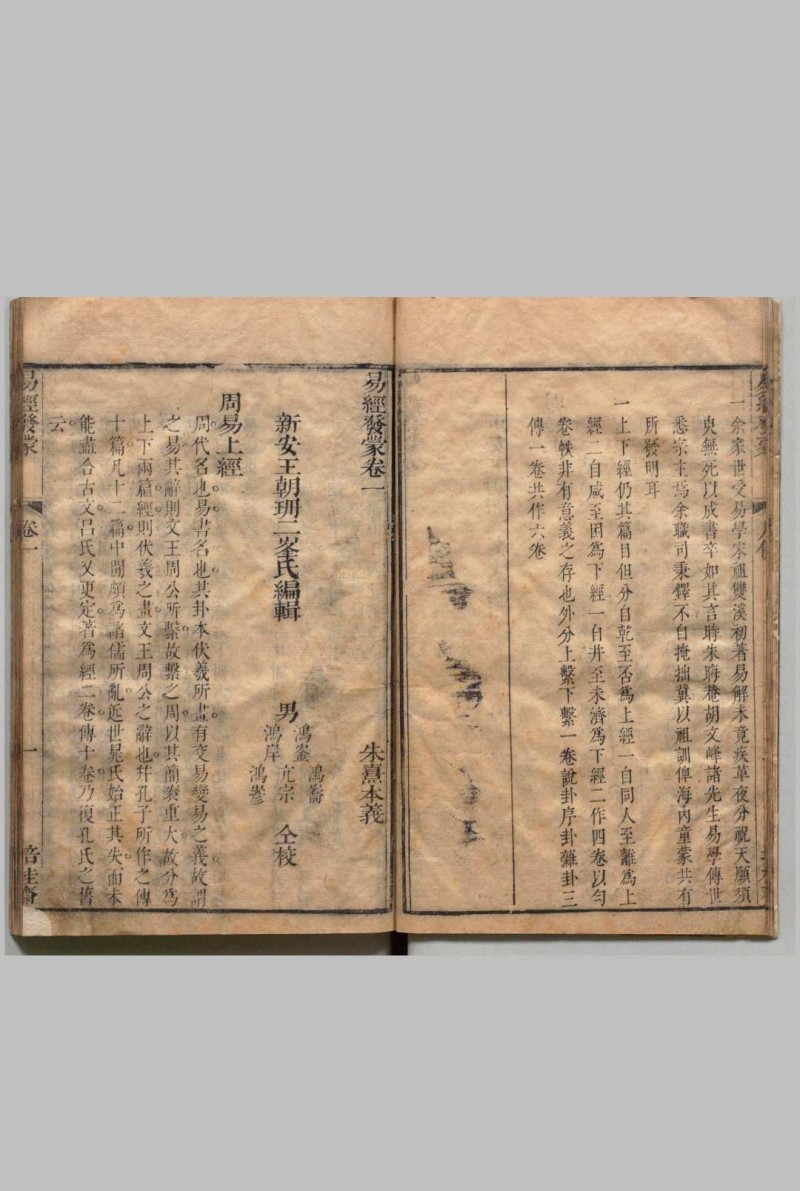 一余家世受易學宋祖雙溪初著易解未竟疾革夜分祝天願須
臾無死以成書辛如其言時朱晦菴胡文峰諸先生易學傳世
悉宗主焉余職司秉鐸不自掩拙冀以祖訓俾海內童蒙共有
所發明耳
一上下經仍其篇目但分自乾至否為上經一自同人至離為上
經二自咸至困為下經一自井至未濟為下經二作四卷以勻
卷帙非有意義之存也外分上繫下繫一卷說卦序卦雜卦三
傳一卷共作六卷
易經發蒙卷一
朱熹本義
新安王朝珊二峯氏編輯
男
鴻崟
鴻喬
鴻岸
亢宗
鴻
仝校
周易上經
周代名也易書名也其卦本伏羲所畫有交易變易之義故謂
之易其辭則文王周公所繫故繫之周以其簡袠重大故分為
上下兩篇經則伏羲之畫文王周公之辭也并孔子所作之傳
十篇凡十二篇中間頗為諸儒所亂近世晁氏始正其失而未
能盡合古文呂氏又更定著為經二卷傳十卷乃復孔氏之舊
云
易經發蒙
卷一
一